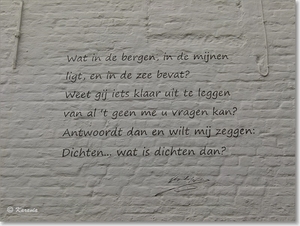 Wat in de bergen, in de mijnen
ligt, en in de zee bevat?
Weet gij iets klaar uit te leggen
van al 't geen me u vragen kan?
Antwoordt dan en wilt mij zeggen:
Dichten... wat is dichten dan?
© Karina